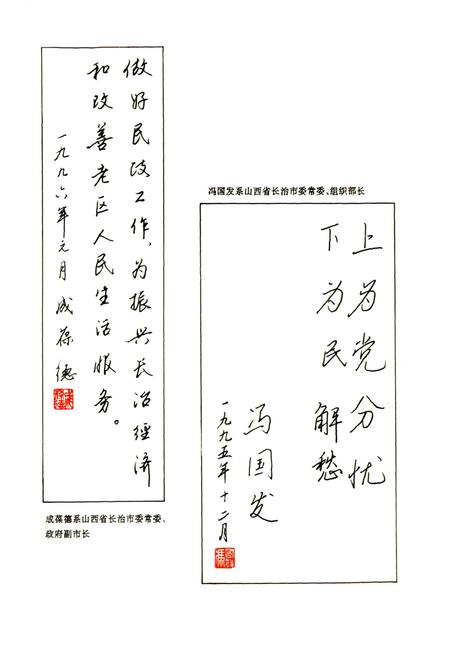 做好民政工作，为振兴长治经济
和改善老区人民生活服务。
一九九六年元月 成葆德
成葆德系山西省长治市委常委、
政府副市长
冯国发系山西省长治市委常委、组织部长
上为党分忧
下为民解愁
冯国发
一九九五年十二月